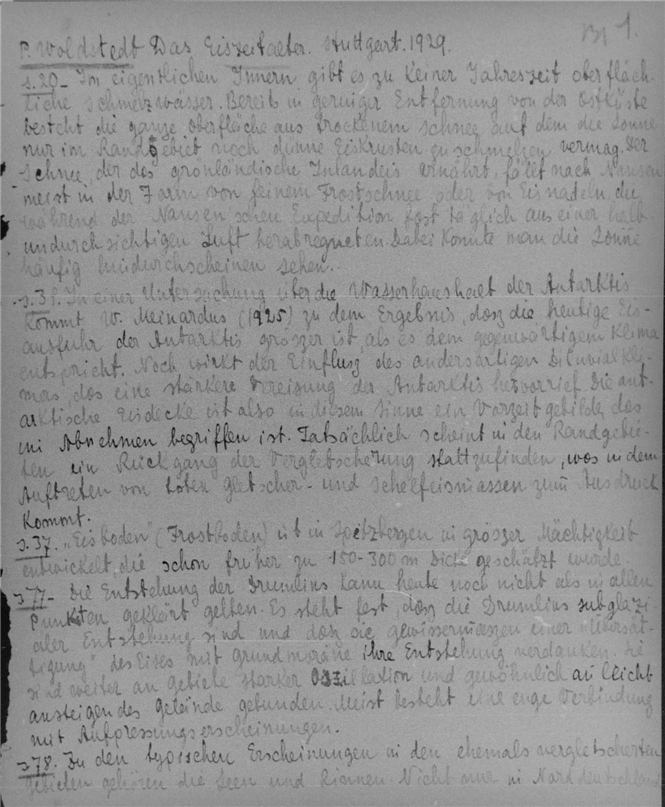 Bl 1.
P. Woldstedt Das Eiszeitalter. Stuttgart. 1929.
S. 20 - Im eigentlichen Innern gibt es zu keiner Jahreszeit oberfläch-
liche Schmelzwasser. Bereits in geringer Entfernung von der Ostküste
besteht die ganze Oberfläche aus trockenem Schnee auf dem die Sonne
nur im Randgebiet noch dünne Eiskrusten zu schmelzen vermag. Der
Schnee der des grönländische Inlandeis ernährt, fällt nach Nansen
meist in der Form von feinem Frostschnee oder von Eisnadeln, die
während der Nansen'schen Expedition fast täglich aus einer halb-
undurchsichtigen Luft herabregneten. Dabei konnte man die Sonne
häufig hindurchscheinen sehen.
S. 31. In einer Untersuchung über die Wasserhaushalt der Antarktis
kommt W. Meinardus (1925) zu dem Ergebnis, dasz die heutige Eis-
ausfuhr der Antarktis grösser ist als es dem gegenwärtigem Klima
entspricht. Noch wirkt der Einflusz des andersartigen Diluvialkli-
mas, das eine stärkere Vereisung der Antarktis hervorrief. Die ant-
arktische Eisdecke ist also in diesem Sinne ein Vorzeitgebilde, das
im Abnehmen begriffen ist. Tatsächlich scheint in den Randgebie-
ten ein Rückgang der Vergletscherung stattzufinden, was in dem
Auftreten von toten Gletscher- und Schelfeismassen zum Ausdruck
kommt.
S. 37. "Eisboden" (Frostboden) ist in Spitzbergen in grosser Mächtigkeit
entwickelt, die schon früher zu 150-300 m Dicke geschätzt wurde.
S 77 - Die Entstehung der Drumlins kann heute noch nicht als in allen
Punkten geklärt gelten. Es steht fest, dasz die Drumlins subglazi-
aler Entstehung sind und dasz sie gewissermassen einer "Übersät-
tigung" des Eises mit Grundmoräne ihre Entstehung verdanken. Sie
sind weiter an Gebiete starker Oszillation und gewöhnlich an leicht
ansteigendes Gelände gebunden. Meist besteht eine enge Verbindung
mit Aufpressungserscheinungen.
S 78. Zu den typischen Erscheinungen in den ehemals vergletscherten
Gebieten gehören die Seen und Rinnen. Nicht nur in Norddeutschland